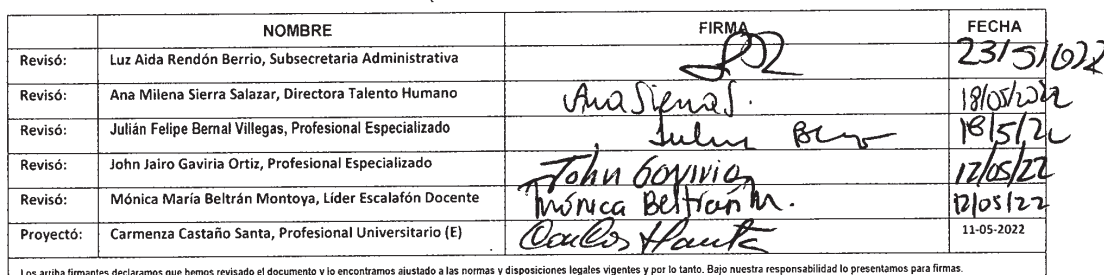 NOMBRE FIRMA FECHA
Revisó: Luz Aida Rendón Berrio, Subsecretaria Administrativa 23/5/2022
Revisó: Ana Milena Sierra Salazar, Directora Talento Humano Ana Sierra S. 18/05/2022
Revisó: Julián Felipe Bernal Villegas, Profesional Especializado 18/5/22
Revisó: John Jairo Gaviria Ortiz, Profesional Especializado John Gaviria 12/05/22
Revisó: Mónica María Beltrán Montoya, Líder Escalafón Docente Mónica Beltrán M. 12/05/22
Proyectó: Carmenza Castaño Santa, Profesional Universitario (E) 11-05-2022
Los arriba firmantes declaramos que hemos revisado el documento y lo encontramos ajustado a las normas y disposiciones legales vigentes y por lo tanto. Bajo nuestra responsabilidad lo presentamos para firmas.